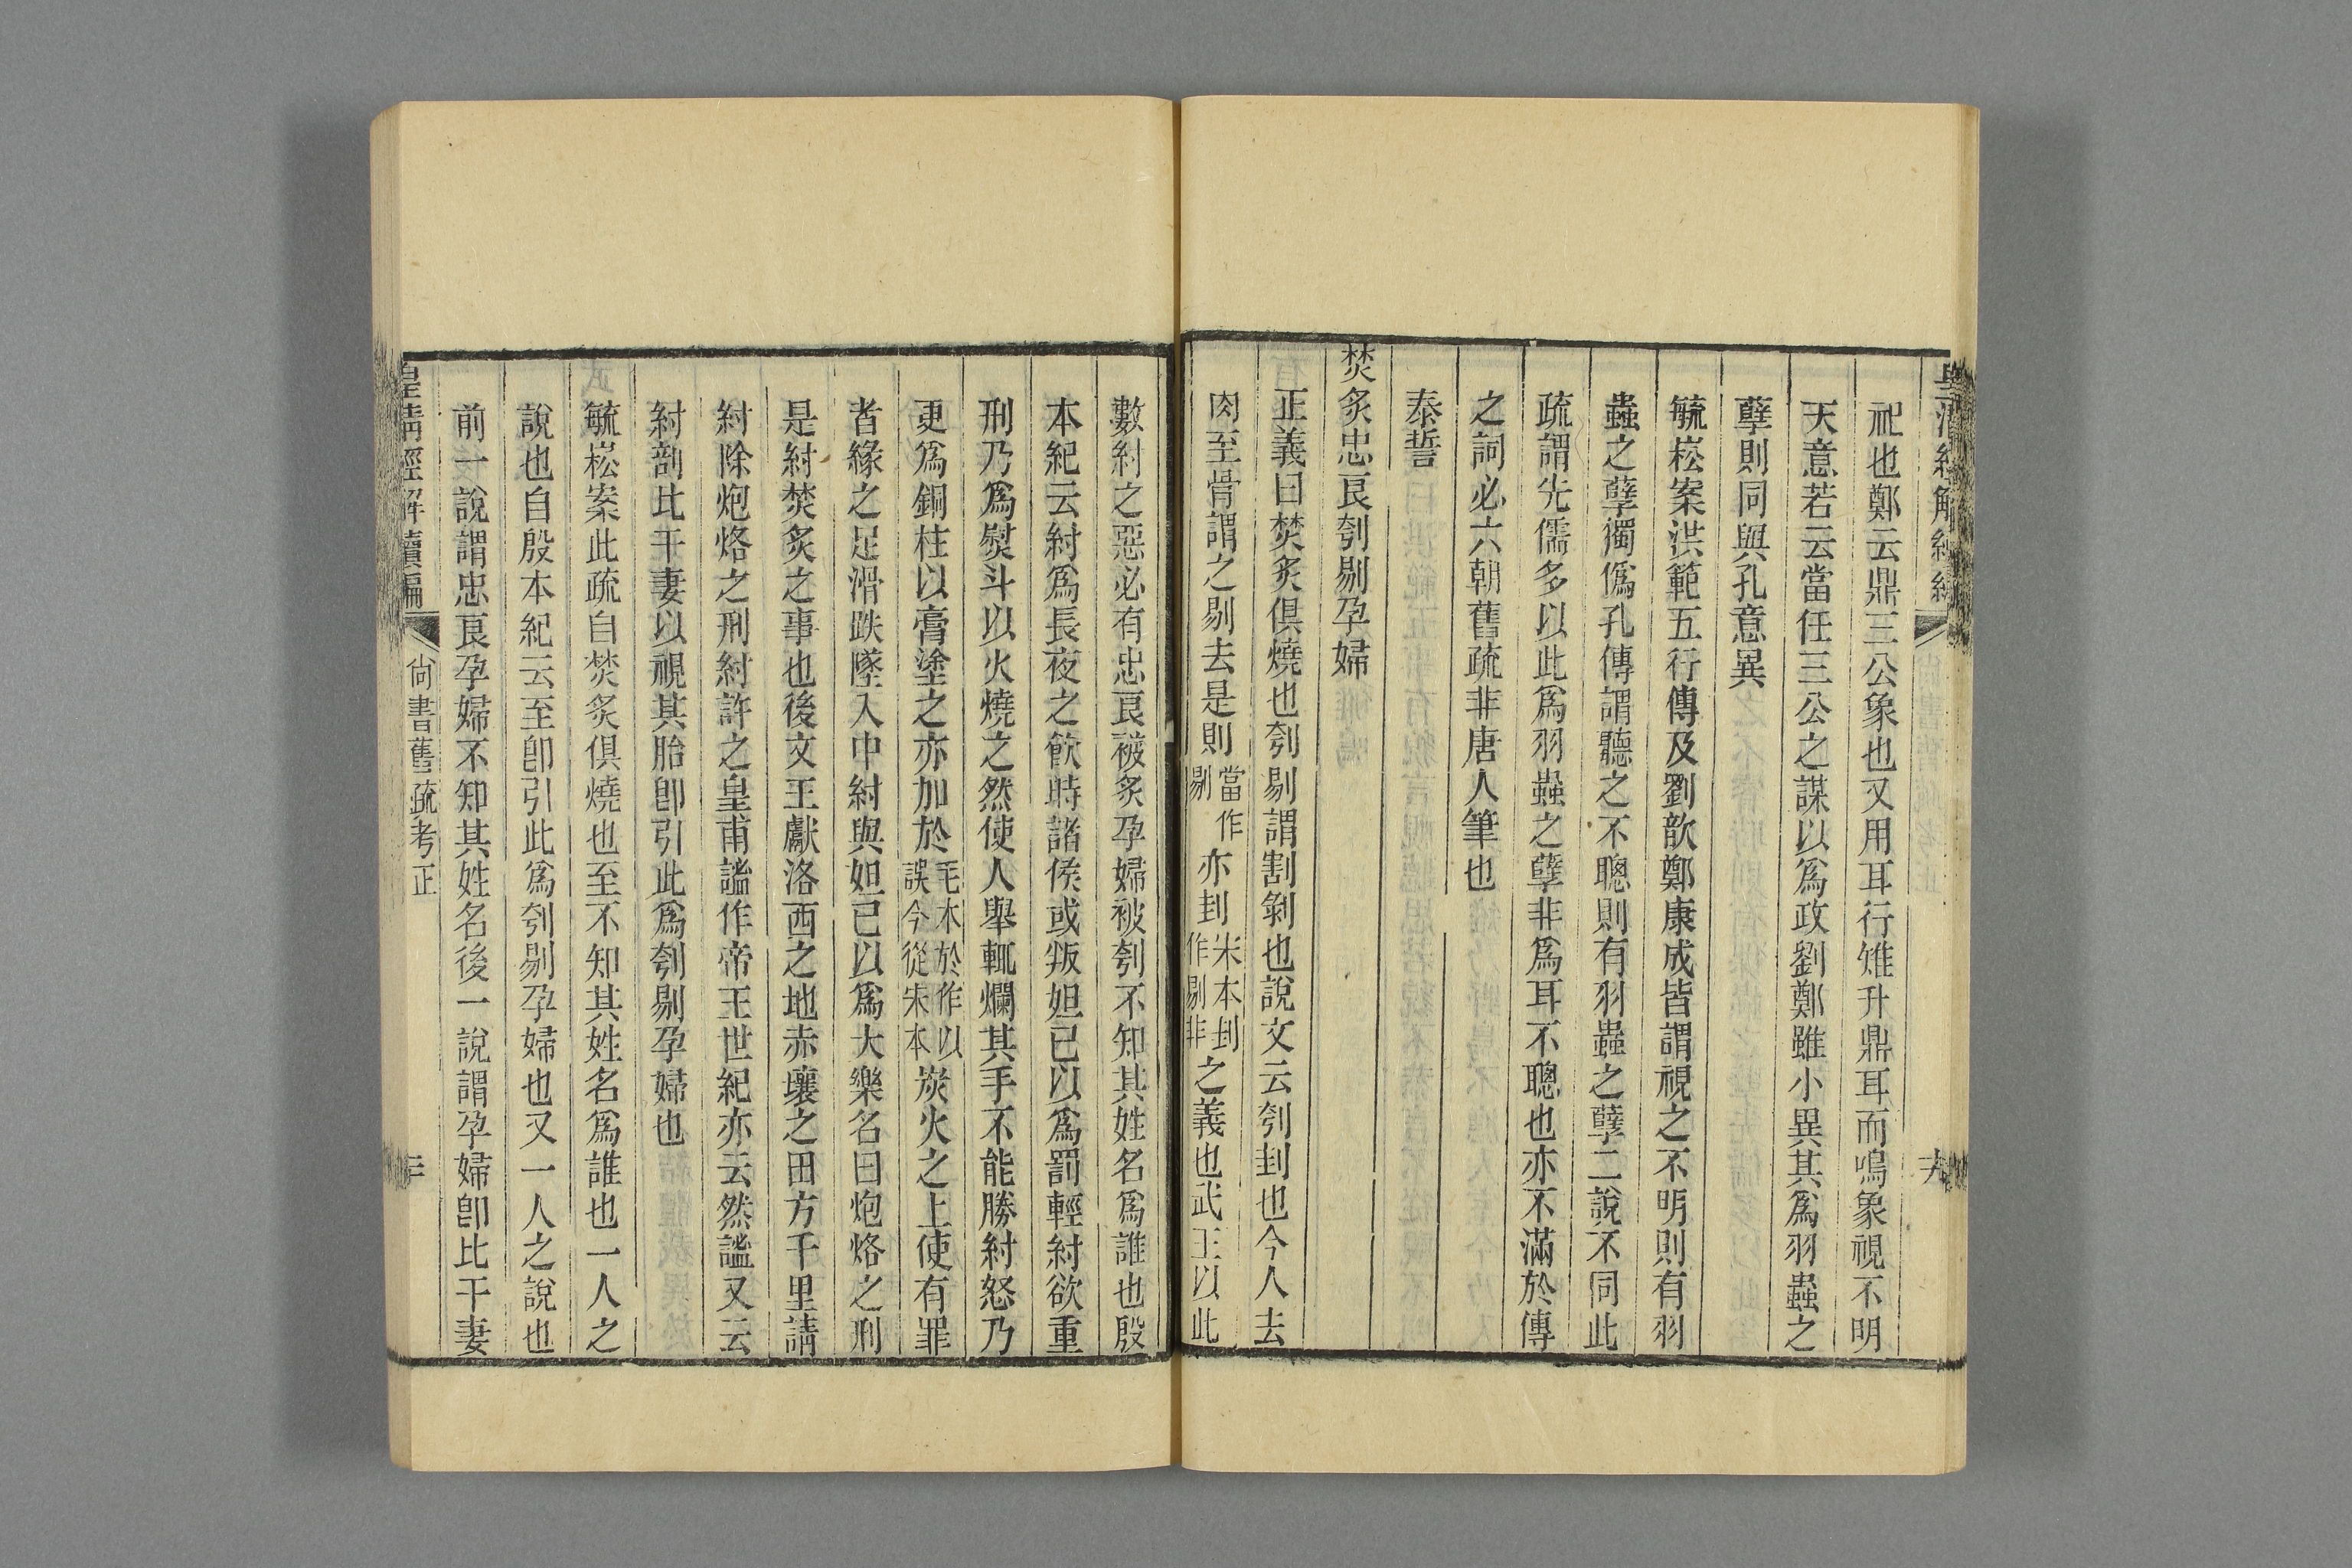 祀也鄭云鼎三公象也又用耳行雉升鼎耳而鳴象視不明
天意若云當任三公之謀以爲政劉鄭雖小異其爲羽蟲之
孽則同與孔意異
毓崧案洪範五行傳及劉歆鄭康成皆謂視之不明則有羽
蟲之孽獨僞孔傳謂聽之不聰則有羽蟲之孽二說不同此
疏謂先儒多以此爲羽蟲之孽非爲耳不聰也亦不滿於傳
之詞必六朝舊疏非唐人筆也
泰誓
焚炙忠良刳剔孕婦
正義曰焚炙俱燒也刳剔謂割剝也說文云刳刲也今人去
肉至骨謂之剔去是則當作剔亦刲宋本刲作剔非之義也武王以此
數紂之惡必有忠良被炙孕婦被刳不知其姓名爲誰也殷
本紀云紂爲長夜之飮時諸侯或叛妲己以爲罰輕紂欲重
刑乃爲熨斗以火燒之然使人舉輒爛其手不能勝紂怒乃
更爲銅柱以膏塗之亦加於毛本於作以誤今從宋本炭火之上使有罪
者緣之足滑跌墜入中紂與妲己以爲大樂名曰炮烙之刑
是紂焚炙之事也後文王獻洛西之地赤壤之田方千里請
紂除炮烙之刑紂許之皇甫謐作帝王世紀亦云然謐又云
紂剖比干妻以視其胎卽引此爲刳剔孕婦也
毓崧案此疏自焚炙俱燒也至不知其姓名爲誰也一人之
說也自殷本紀云至卽引此爲刳剔孕婦也又一人之說也
前一說謂忠良孕婦不知其姓名後一說謂孕婦卽比干妻
皇淸經解續編
尙書舊疏考正